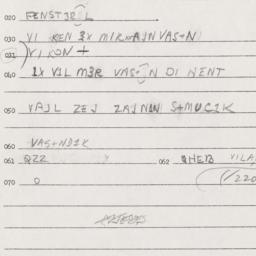 020 FENST3R L
030 VI KEN IX MIR AJN VAS+N
031 VI KON +
040 IX VIL M3R VAS+N DI HENT
050 VAJL ZEJ ZAJNIN S+MUCIK
060 VAS+NDIK
061 QZZ 062 QHEB VILA
070 0 1/220